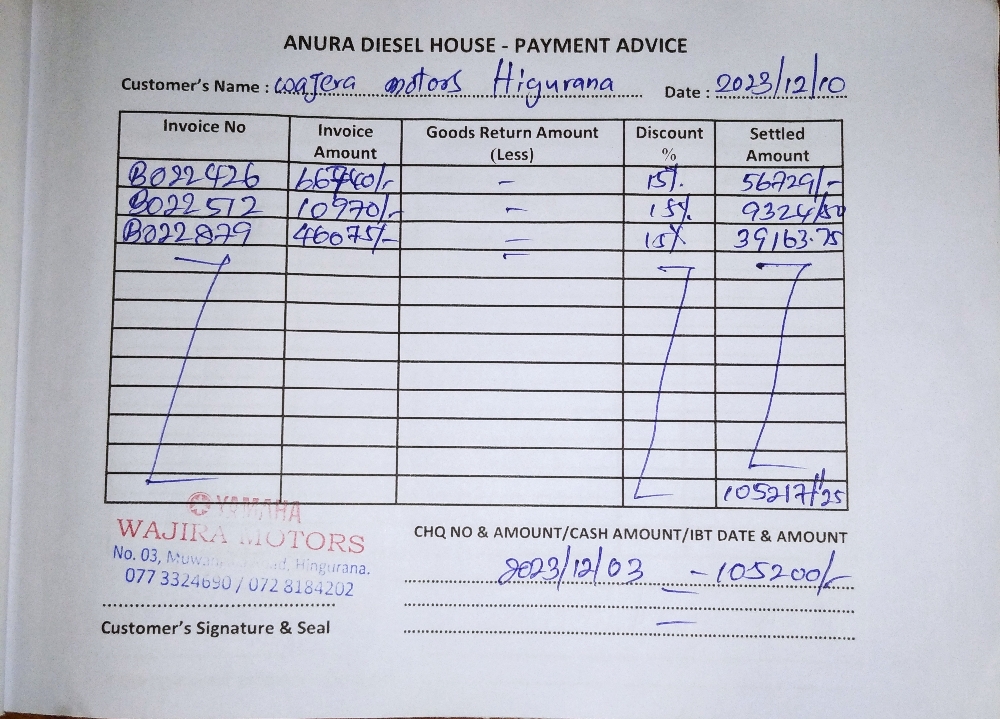 ANURA DIESEL HOUSE - PAYMENT ADVICE
Customer's Name : Wajera motors Higurana Date : 2023/12/10
Invoice No Invoice Amount Goods Return Amount (Less) Discount % Settled Amount
B022426 66740/- – 15%. 56729/-
B022512 10970/- – 15% 9324/50
B022879 46075/- – 15% 39163.75
105217/25
YAMAHA
WAJIRA MOTORS
No. 03, Hingurana.
077 3324690 / 072 8184202
Customer's Signature & Seal
CHQ NO & AMOUNT/CASH AMOUNT/IBT DATE & AMOUNT
2023/12/03 – 105200/-